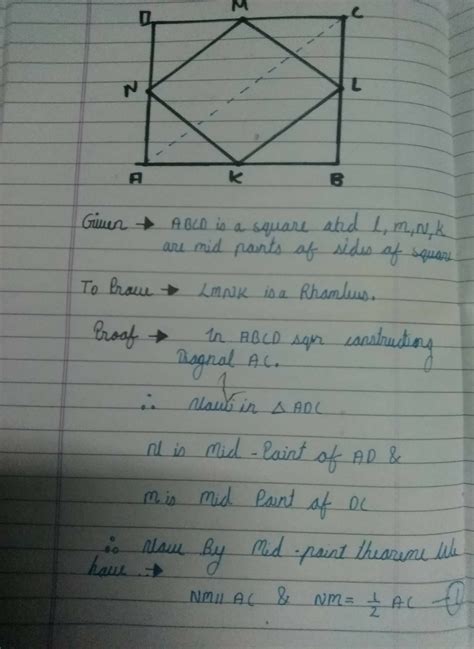 D M C
N L
A K B
Given → ABCD is a square and l, m, N, k
are mid points of sides of square
To Prove → LMNK is a Rhombus.
Proof → In ABCD sqr constructing
Diagnal AC.
∴ Now in △ ADC
N is Mid-Point of AD &
M is Mid Point of DC
∴ Now By Mid-point theoreme We
have →
NM || AC & NM = 1/2 AC —①